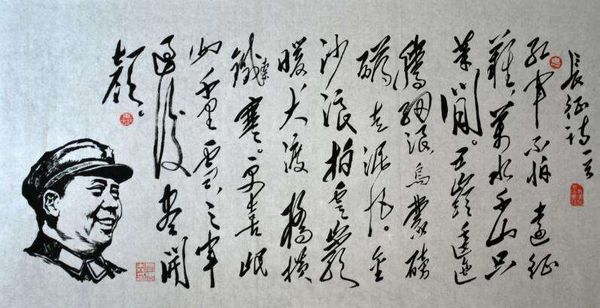 長征詩一首
红军不怕遠征
難萬水千山只
等閒。五嶺逶迤
騰细浪烏蒙磅
礴走泥丸。金
沙浪拍雲崖
暖大渡橋横
鐵索寒。更喜岷
山千里雪三军
過後盡開
顔。